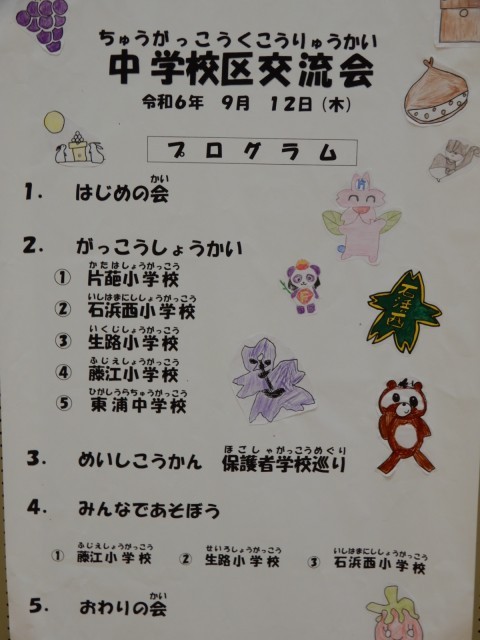 ちゅうがっこうくこうりゅうかい
中学校区交流会
令和6年 9月 12日(木)
プログラム
1. はじめの会
かい
2. がっこうしょうかい
かたはしょうがっこう
① 片葩小学校
いしはまにししょうがっこう
② 石浜西小学校
いくじしょうがっこう
③ 生路小学校
ふじえしょうがっこう
④ 藤江小学校
ひがしうらちゅうがっこう
⑤ 東浦中学校
ほごしゃがっこうめぐり
3. めいしこうかん 保護者学校巡り
4. みんなであそぼう
ふじえしょうがっこう せいろしょうがっこう いしはまにししょうがっこう
① 藤江小学校 ② 生路小学校 ③ 石浜西小学校
かい
5. おわりの会
片
石浜西